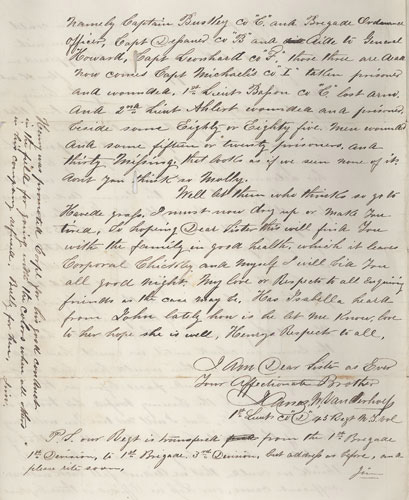 namely Captain Buskey co "C" and Brigade Ordinance
Officer, Capt Depaned co "B" and Aide to General
Howard, Capt Leonhard co "F". those three are dead
Now comes Capt Michaelis co I" taken prisoned
and wounded. 1st Lieut Bapon co "C" lost arm.
And 2nd Lieut Ahlert wounded and prisoned.
beside some Eighty or Eighty five. Men wounded
and some fifteen or twenty prisoners, and
thirty Missing. that looks as if we seen none of it,
dont you think so Molly.
Well let them who thinks so go to
grass, I must now dry up or make you
tired, So hoping Dear Sister this will find You
with the family in good health, which it leaves
Corporal Chickley and myself I will bid You
all good night, My love or Respects to all enquiring
friends as the case may be. Has Isabella heard
from John lately how is he let me know, love
to her hope she is well, Henrys Respects to all,
I Am Dear Sister as Ever
Your Affectionate Brother
James M. Vanderhoff
1st Lieut co "D" 45 Regt N.Y. Vol
P.S. our Regt is transferd from the 1st Brigade
1st Division, to 1st Brigade 3rd Division, but address as before, and
please write soon,
Jim
Henry was promoted Corpl for his good conduct
in the field for going with the colors when all others
in his company refused. Bully for him,
Jim